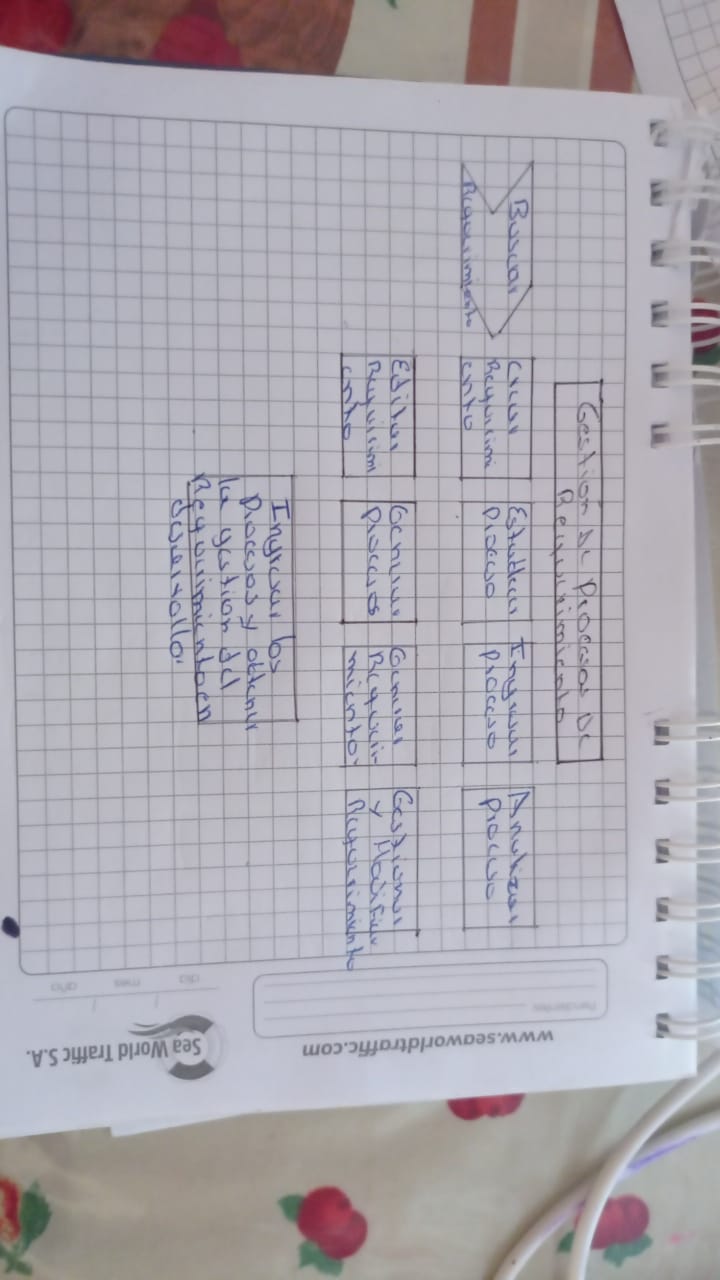 Gestion De Procesos De
Requerimiento
Buscar
Requerimiento
Crear
Requerimi
ento
Establecer
proceso
Ingresar
proceso
Analizar
proceso
Editar
Requerimi
ento
Generar
procesos
Generar
Requerir
miento
Gestionar
y Modificar
Requerimiento
Ingresar los
procesos y obtener
la gestion del
Requerimiento en
desarrollo.
Pendientes
www.seaworldtraffic.com
día
mes
año
Sea World Traffic S.A.